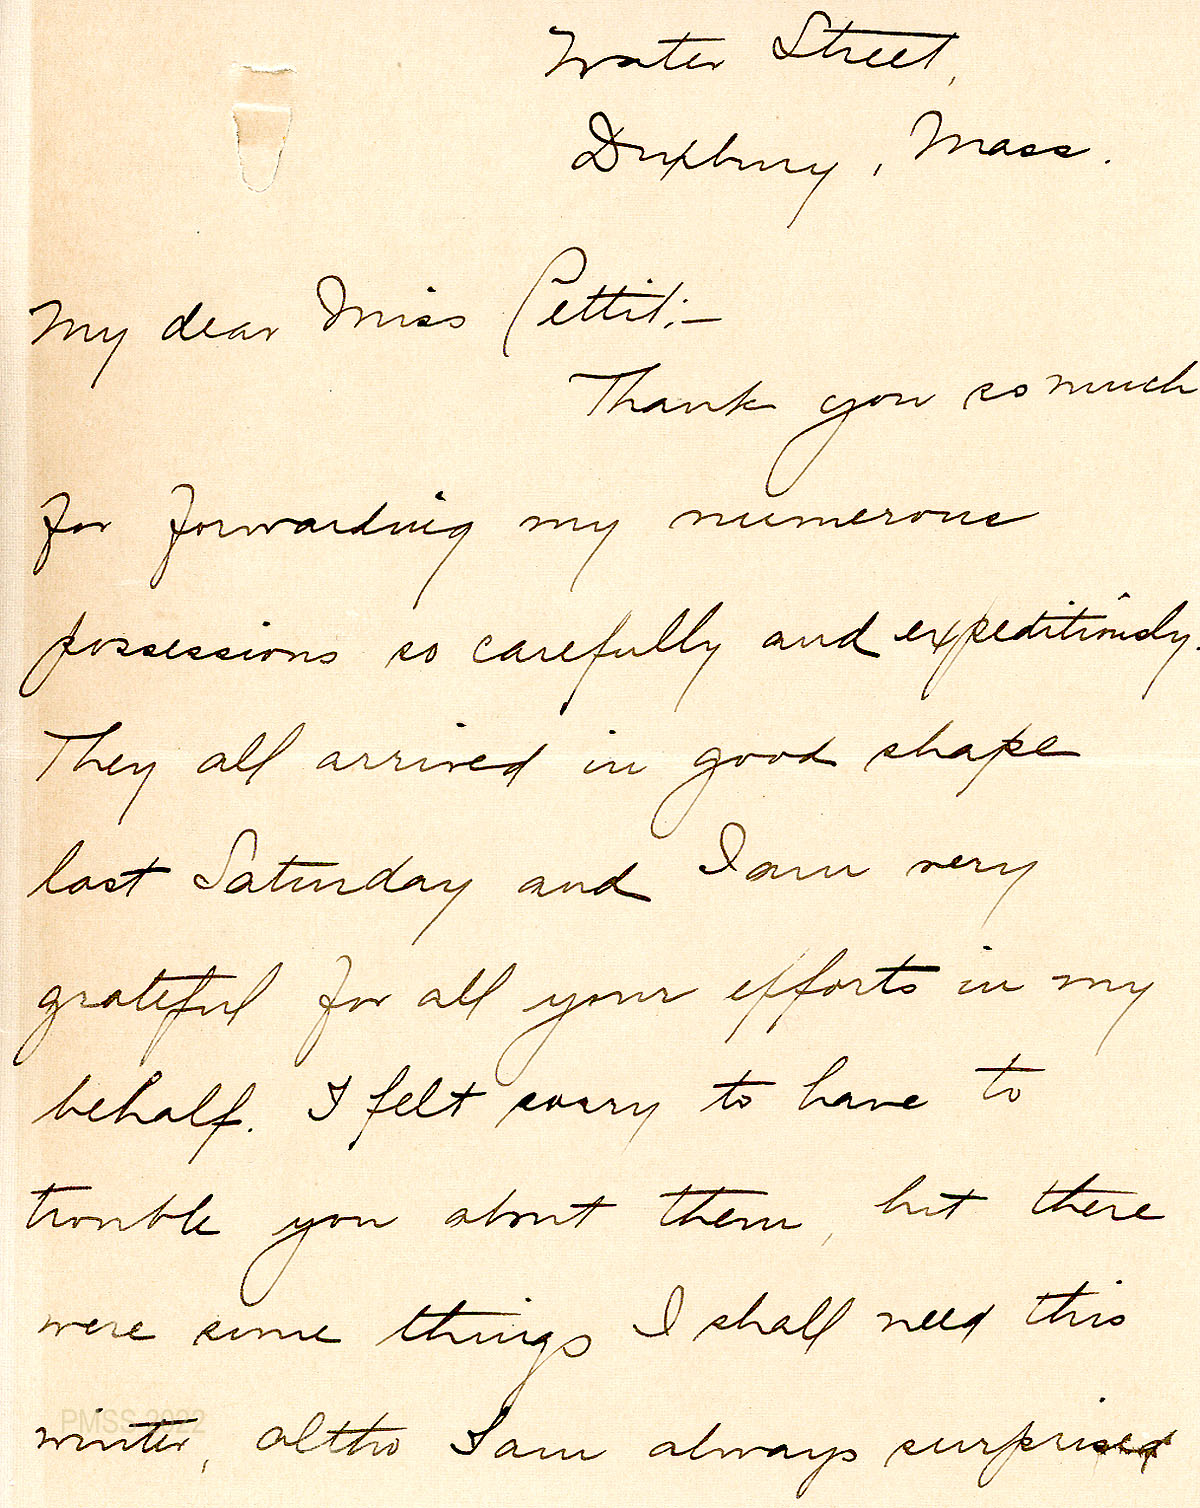 Water Street,
Duxbury, Mass.
My dear Miss Pettit;—
Thank you so much
for forwarding my numerous
possessions so carefully and expeditiously.
They all arrived in good shape
last Saturday and I am very
grateful for all your efforts in my
behalf. I felt sorry to have to
trouble you about them, but there
were some things I shall need this
winter, altho I am always surprised
PMSS 2022